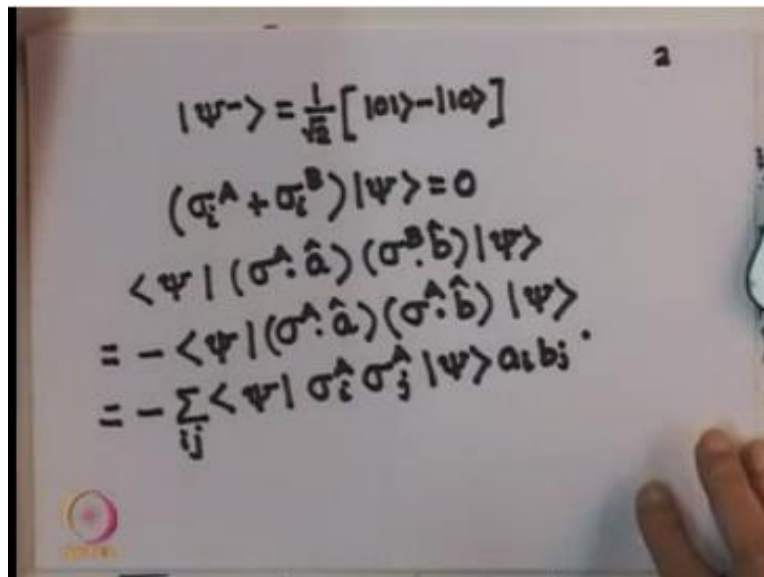 2
|ψ⁻> = 1/√2 [|01>-|10>]
(σᵢᴬ + σᵢᴮ)|ψ> = 0
<ψ|(σᴬ.â)(σᴮ.b̂)|ψ>
= - <ψ|(σᴬ.â)(σᴬ.b̂)|ψ>
= - Σᵢⱼ <ψ| σᵢᴬ σⱼᴬ |ψ> aᵢ bⱼ .